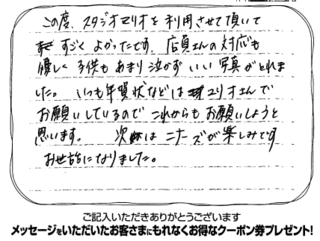 この度、スタジオマリオを利用させて頂いて
すごく よかったです。店員さんの対応も
優しく 子供も あまり 泣かず いい 写真が とれま
した。 いつも 年賀状などは マリオさんで
お願いしているので これからも お願いしようと
思います。 次は ニューズが楽しみです
お世話になりました。
ご記入いただきありがとうございます
メッセージをいただいたお客さまにもれなくお得なクーポン券プレゼント!